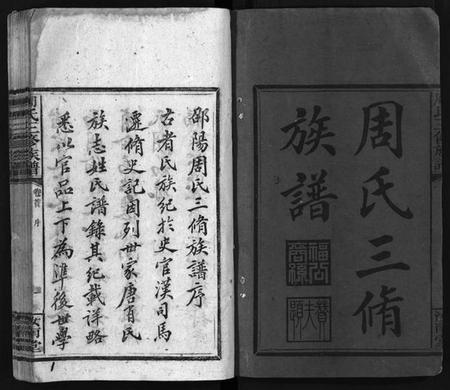 周氏三脩
族譜
邵陽周氏三脩族譜序
古者氏族紀於史官漢司馬
遷脩史記因列世家唐有氏
族志姓氏譜錄其紀載詳略
悉以官品上下為準後世學
周氏三修族譜
卷首
序